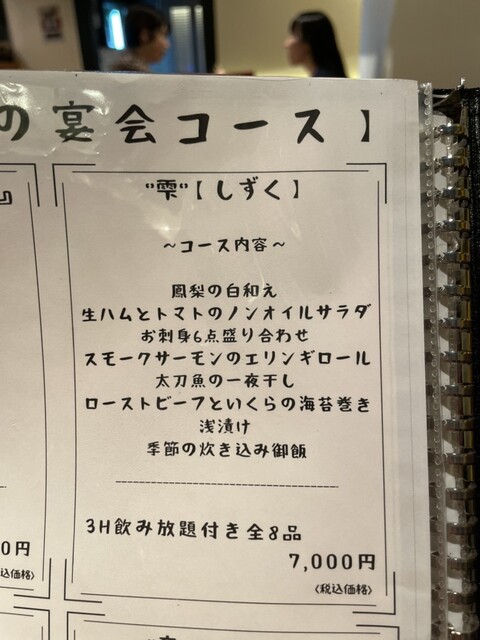 の宴会コース】
雫【しずく】
～コース内容～
鳳梨の白和え
生ハムとトマトのノンオイルサラダ
お刺身6点盛り合わせ
スモークサーモンのエリンギロール
太刀魚の一夜干し
ローストビーフといくらの海苔巻き
浅漬け
季節の炊き込み御飯
3H飲み放題付き全8品
7,000円
〈税込価格〉
0円
込価格〉